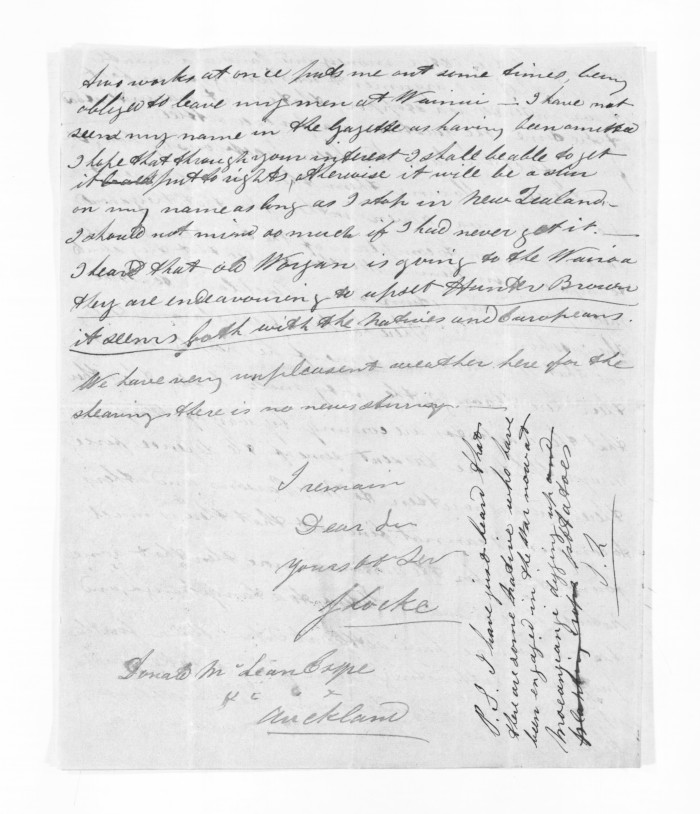 two works at once puts me out some times, being
obliged to leave my men at Wainui — I have not
seend my name in the Gazette as having been omitted
I hope that through your interest I shall be able to get
it put to rights, otherwise it will be a slur
on my name as long as I stop in New Zealand.
I should not mind so much if I had never got it. —
I heard that old Worgan is going to the Wairoa
they are endeavouring to upset Hunter Brown
it seems both with the Natives and Europeans.
We have very unpleasent weather here for the
shearing, there is no news stirring. —
I remain
Dear Sir
Yours Ob Ser
J Locke
Donald McLean Esqre
&c &c
Auckland
P.S. I have just heard that
there are some natives who have
been engaged in the War now at
digging up and
potatoes
J. L